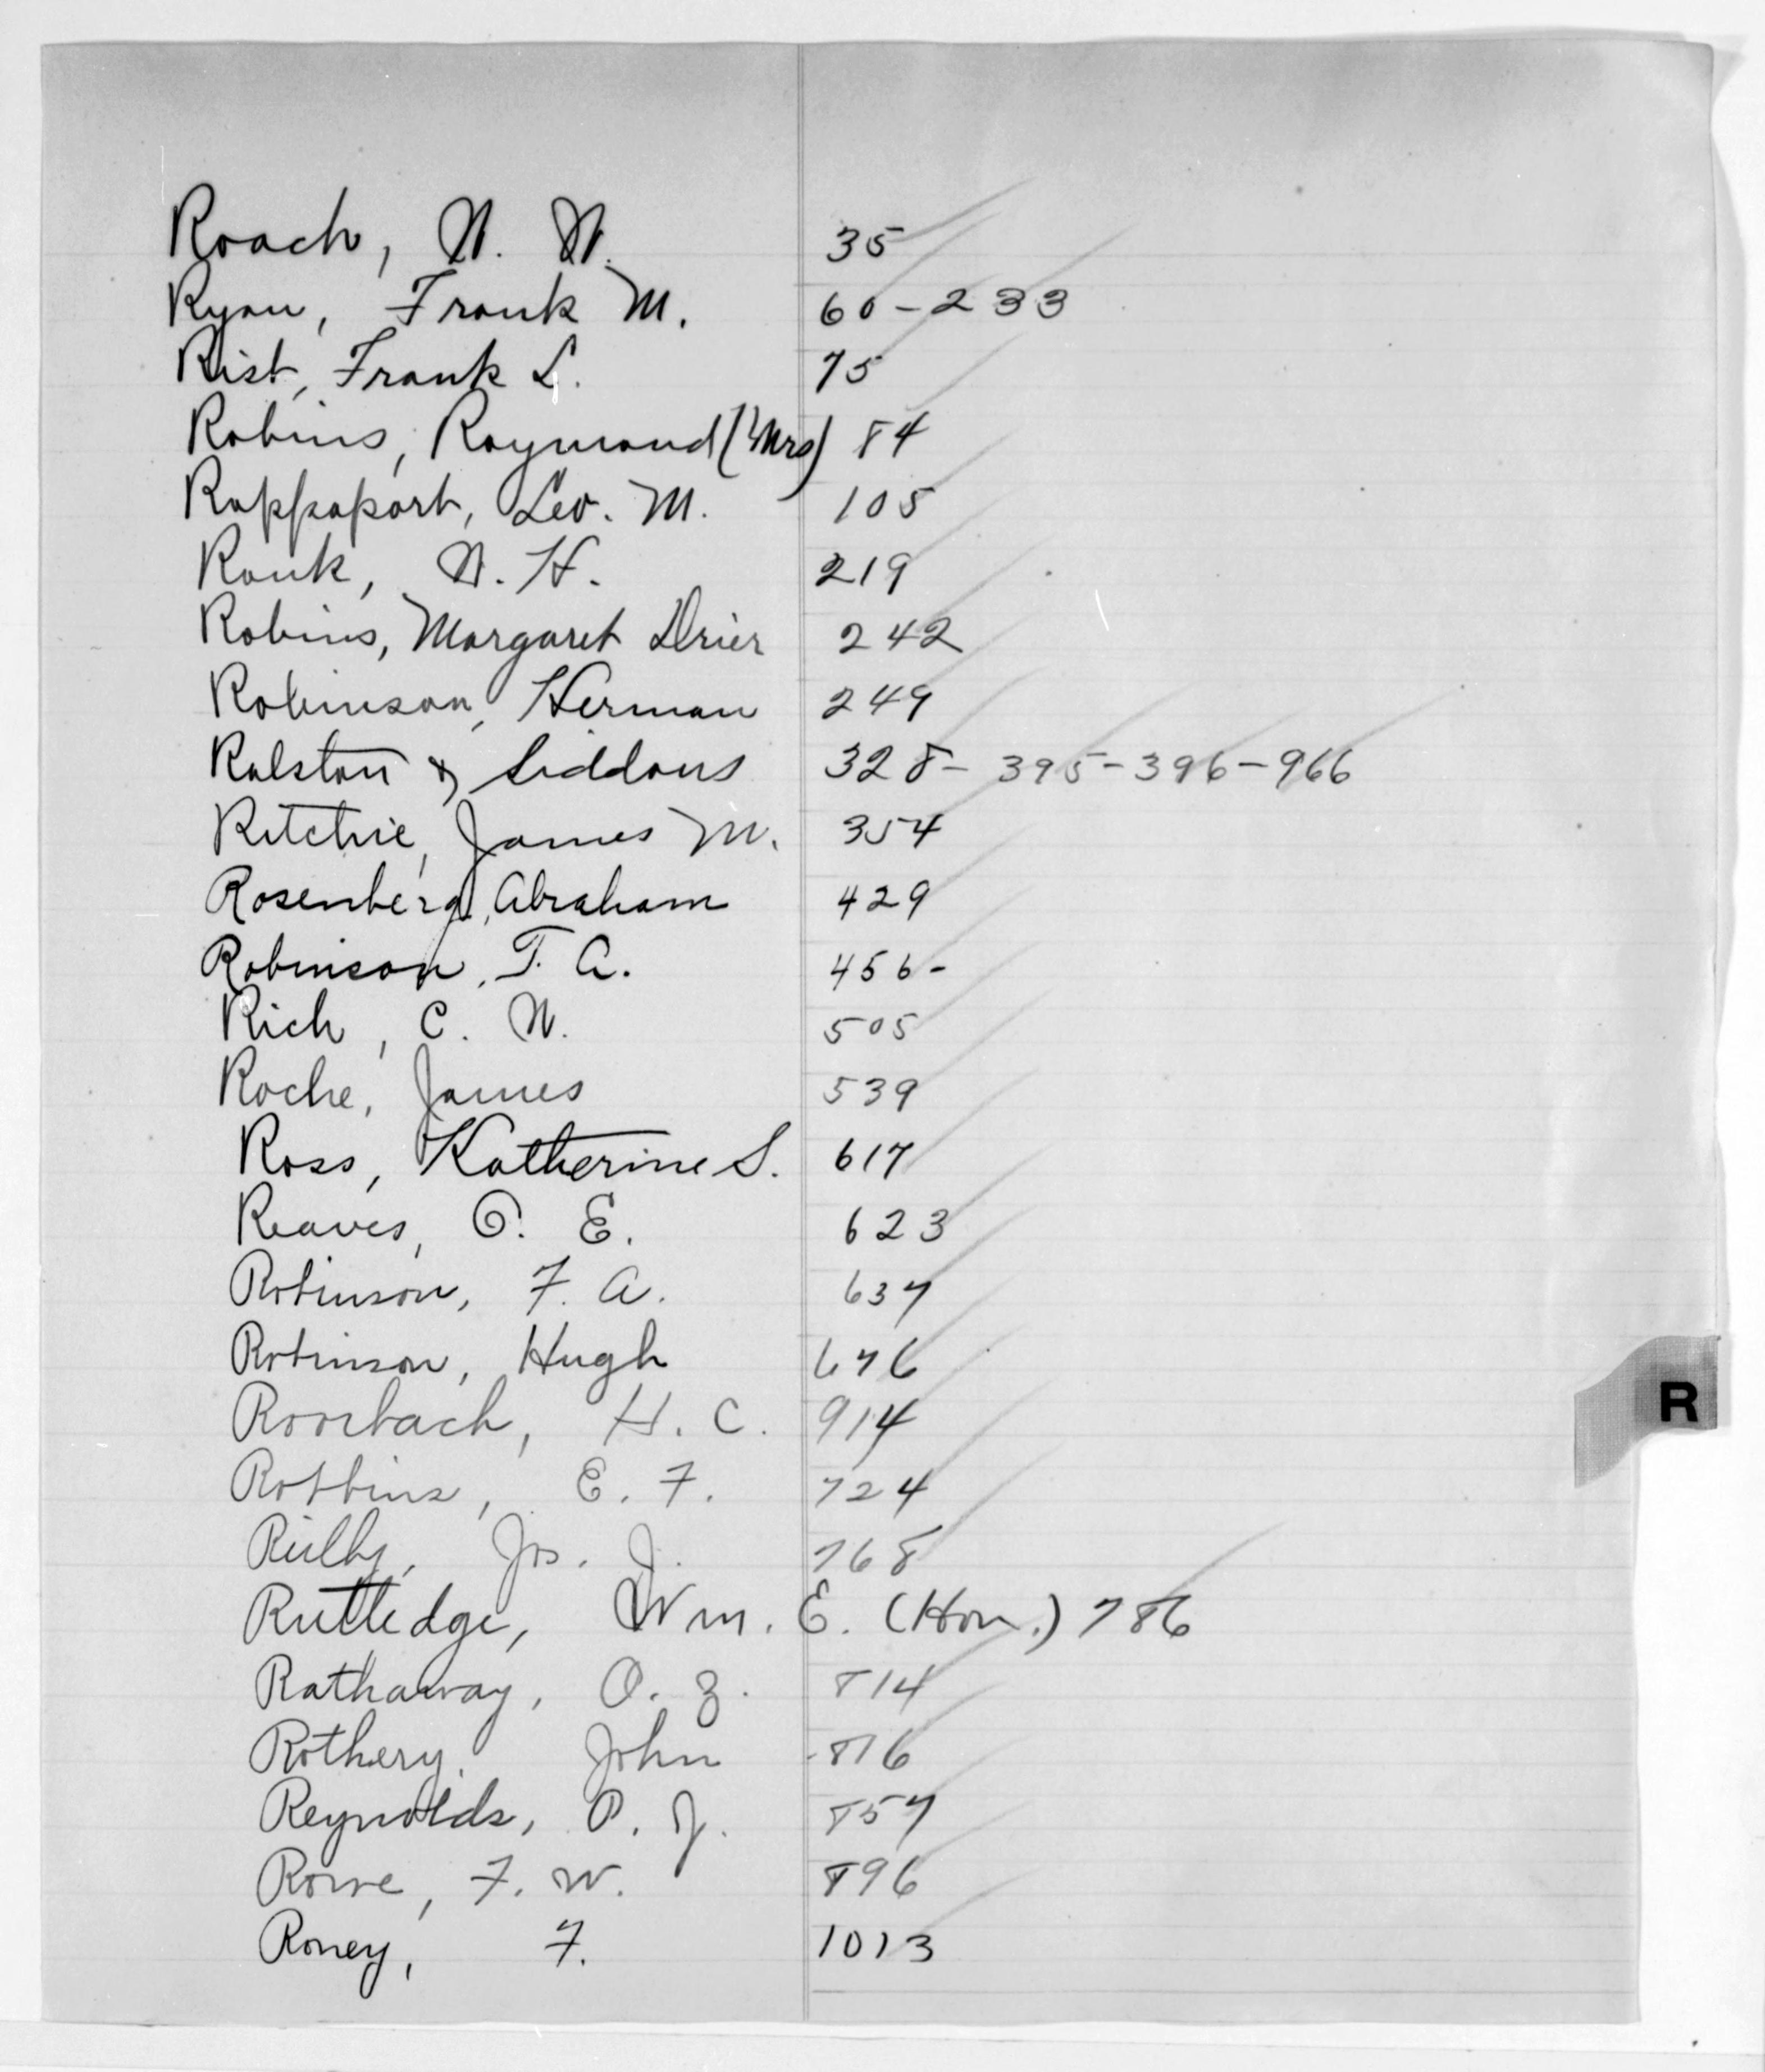 Roach, W. W. 35
Ryan, Frank M. 60-233
Rist, Frank L. 75
Robins, Raymond (Mrs) 84
Rappaport, Leo. M. 105
Ronk, W. H. 219
Robins, Margaret Drier 242
Robinson, Herman 249
Ralston & Siddons 328-395-396-966
Ritchie, James M. 354
Rosenberg, Abraham 429
Robinson, T. A. 456-
Rich, C. W. 505
Roche, James 539
Ross, Katherine S. 617
Reaves, O. E. 623
Robinson, F. A. 637
Robinson, Hugh 676
Roorbach, H. C. 914
Robbins, E. F. 724
Reilly, Jos. J. 768
Rutledge, Wm. E. (Hon.) 786
Rathaway, O. Z. 814
Rothery, John 816
Reynolds, P. J. 857
Rowe, F. W. 896
Roney, F. 1013
R